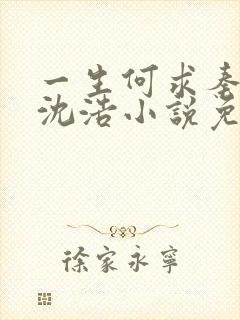 一生何求秦
沈浩小說免
徐家永寧